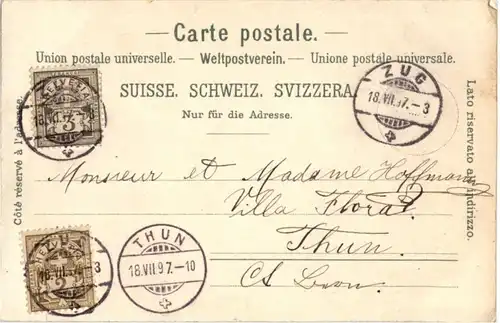 — Carte postale. —
Union postale universelle. — Weltpostverein. — Unione postale universale.
SUISSE. SCHWEIZ. SVIZZERA.
Nur für die Adresse.
Côté réservé à l'adresse.
Lato riservato all'indirizzo.
HELVETIA
3
ZUG
18.VII.97.–3
Monsieur et Madame Hoffmann
Villa Flora
Thun.
Ct Bern.
ZUG
2
THUN
18.VII.97.–10